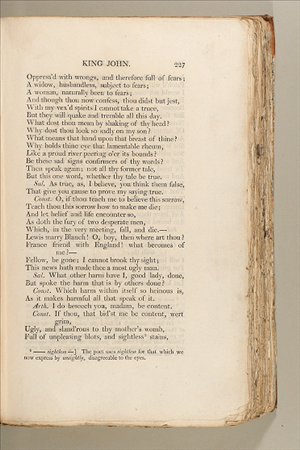 KING JOHN. 227
Oppress'd with wrongs, and therefore full of fears;
A widow, husbandless, subject to fears;
A woman, naturally born to fears;
And though thou now confess, thou didst but jest,
With my vex'd spirits I cannot take a truce,
But they will quake and tremble all this day.
What dost thou mean by shaking of thy head?
Why dost thou look so sadly on my son?
What means that hand upon that breast of thine?
Why holds thine eye that lamentable rheum,
Like a proud river peering o'er its bounds?
Be these sad signs confirmers of thy words?
Then speak again; not all thy former tale,
But this one word, whether thy tale be true.
Sal. As true, as, I believe, you think them false,
That give you cause to prove my saying true.
Const. O, if thou teach me to believe this sorrow,
Teach thou this sorrow how to make me die;
And let belief and life encounter so,
As doth the fury of two desperate men,
Which, in the very meeting, fall, and die.—
Lewis marry Blanch! O, boy, then where art thou?
France friend with England! what becomes of
me?—
Fellow, be gone; I cannot brook thy sight;
This news hath made thee a most ugly man.
Sal. What other harm have I, good lady, done,
But spoke the harm that is by others done?
Const. Which harm within itself so heinous is,
As it makes harmful all that speak of it.
Arth. I do beseech you, madam, be content.
Const. If thou, that bid'st me be content, wert
grim,
Ugly, and sland'rous to thy mother's womb,
Full of unpleasing blots, and sightless stains,
—— sightless —] The poet uses sightless for that which we
now express by unsightly, disagreeable to the eyes.